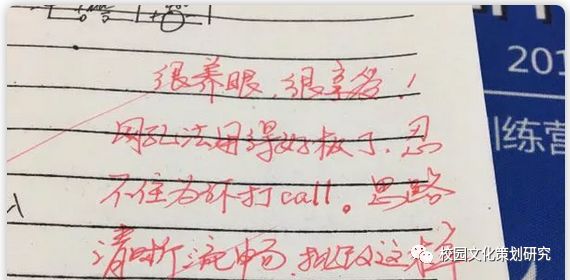 很养眼,很享受!
网孔法用得好极了,忍
不住为你打call。思路
清晰流畅,批改这
201
练营
校园文化策划研究